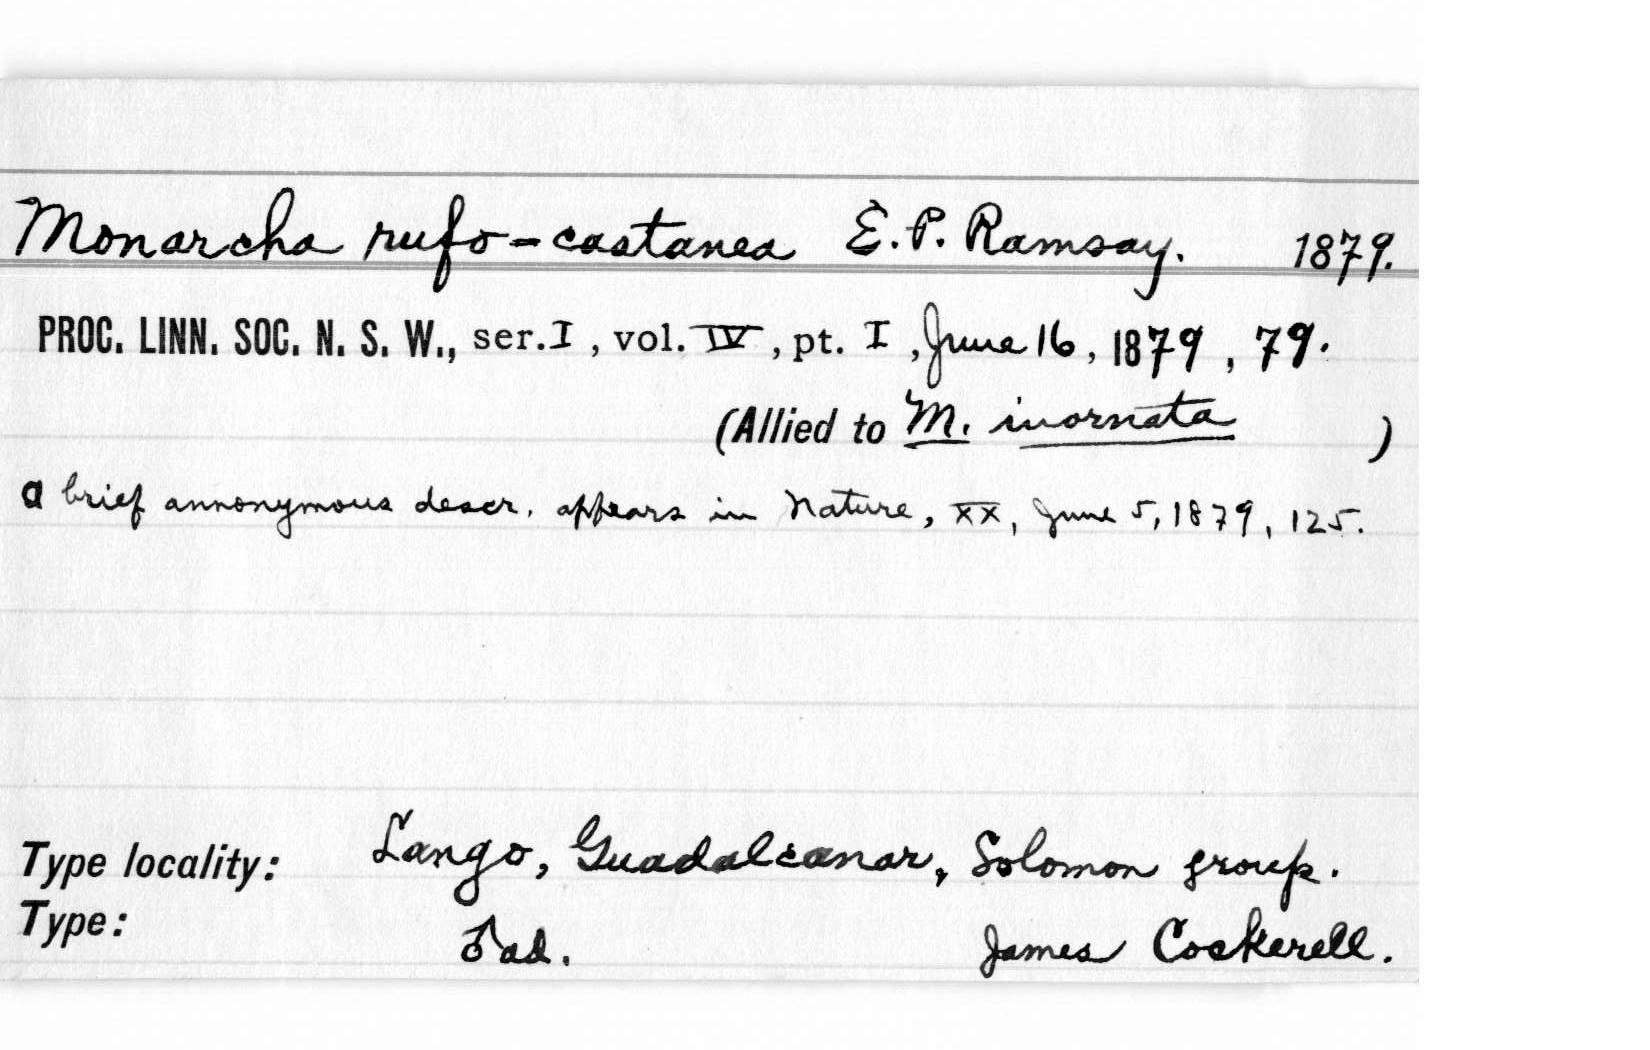 Monarcha rufo-castanea E. P. Ramsay. 1879.
PROC. LINN. SOC. N. S. W., ser. I, vol. IV, pt. I, June 16, 1879, 79.
(Allied to M. inornata )
a brief annonymous descr. appears in Nature, XX, June 5, 1879, 125.
Type locality: Lango, Guadalcanar, Solomon group.
Type: ♂ ad. James Cockerell.